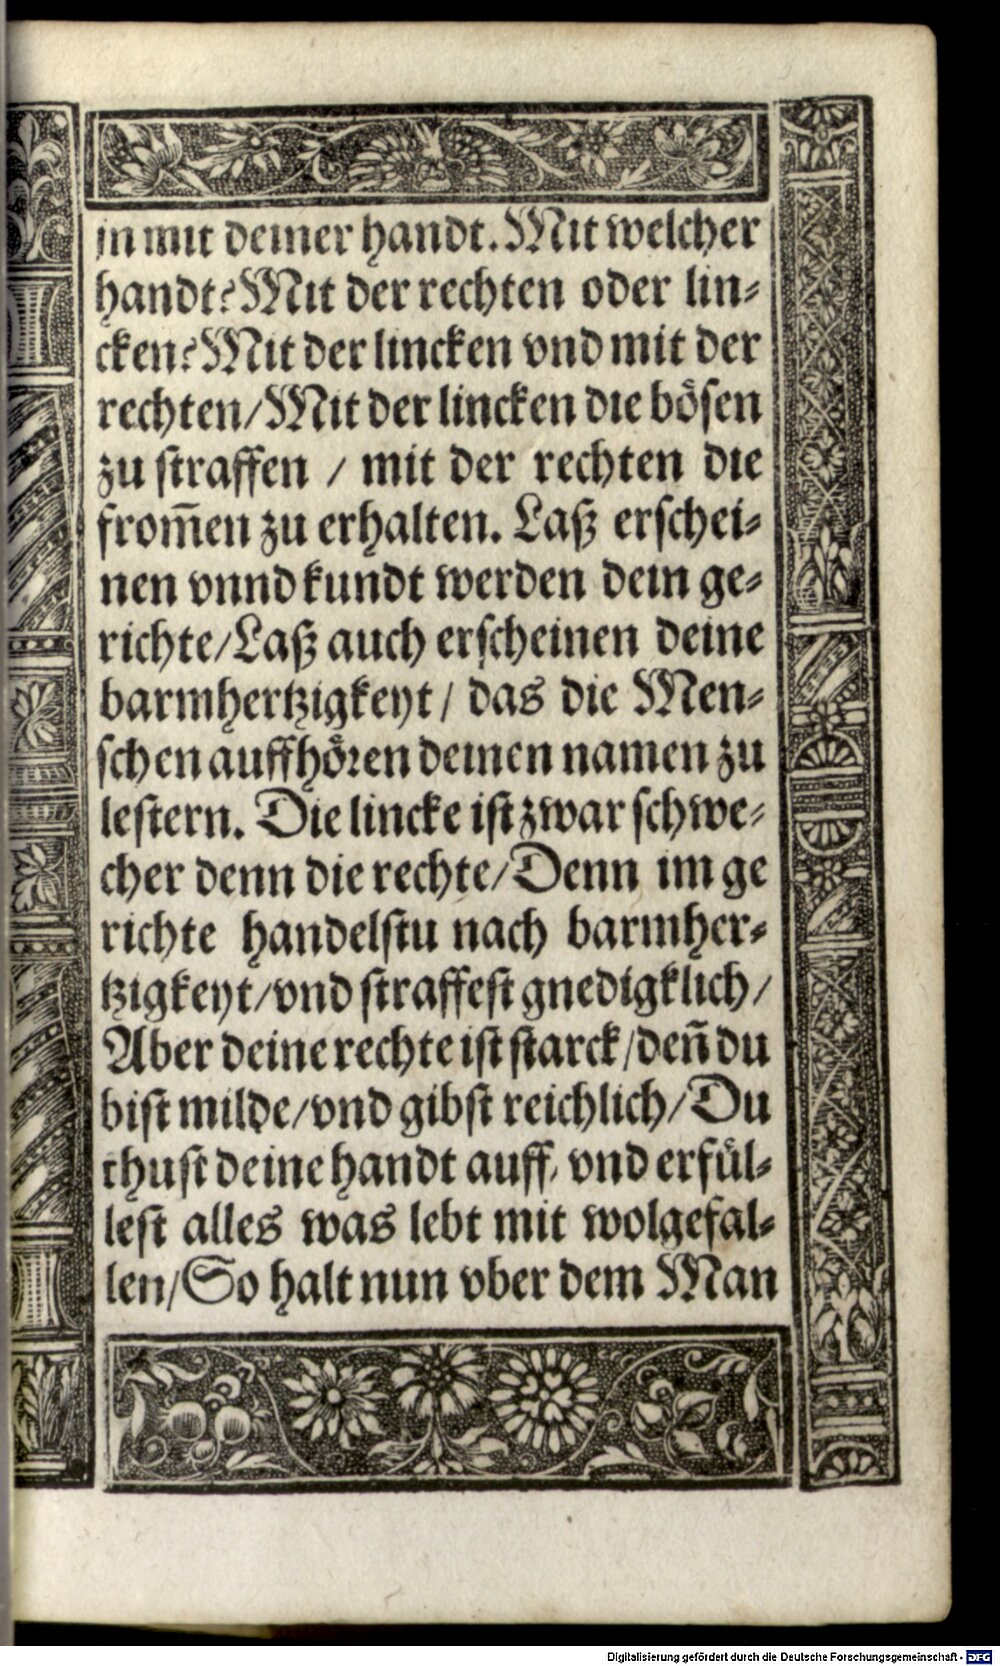 jn mit deiner handt. Mit welcher
handt? Mit der rechten oder lin⸗
cken? Mit der lincken vnd mit der
rechten/ Mit der lincken die bösen
zu straffen / mit der rechten die
from̄en zu erhalten. Laß erschei⸗
nen vnnd kundt werden dein ge⸗
richte/ Laß auch erscheinen deine
barmhertzigkeyt/ das die Men⸗
schen auffhören deinen namen zu
lestern. Die lincke ist zwar schwe⸗
cher denn die rechte/ Denn im ge
richte handelstu nach barmher⸗
tzigkeyt/ vnd straffest gnedigklich/
Aber deine rechte ist starck/ den̄ du
bist milde/ vnd gibst reichlich/ Du
thust deine handt auff, vnd erfül⸗
lest alles was lebt mit wolgefal⸗
len/ So halt nun vber dem Man
Digitalisierung gefördert durch die Deutsche Forschungsgemeinschaft - DFG